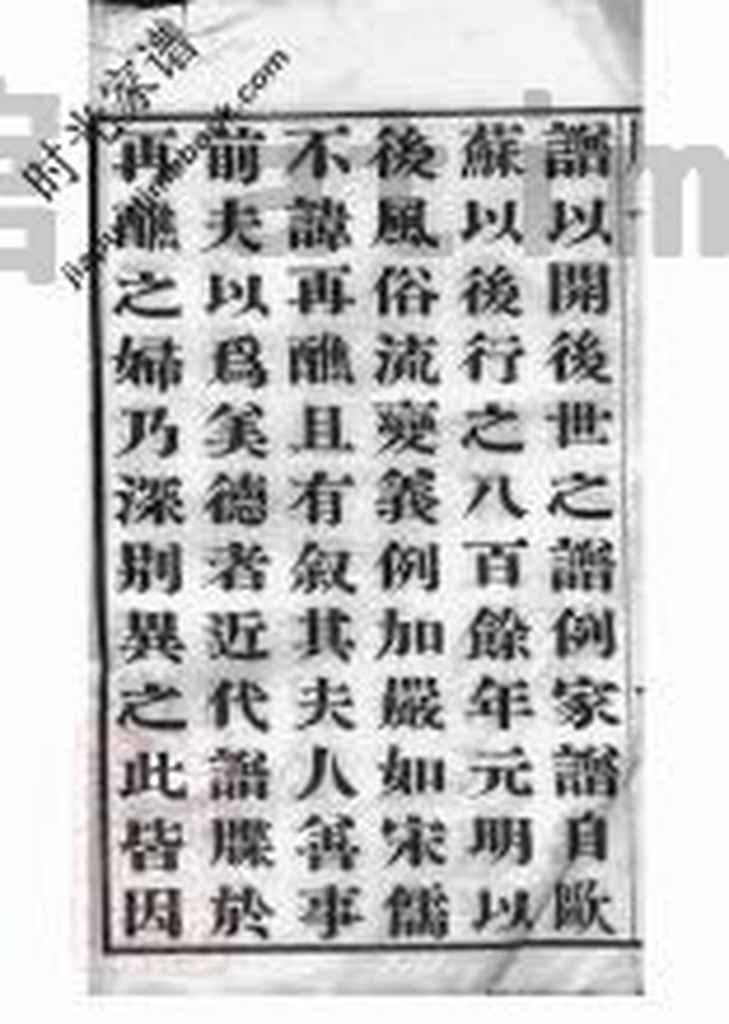 譜以開後世之譜例家譜自歐
蘇以後行之八百餘年元明以
後風俗流變義例加嚴如宋儒
不諱再醮且有叙其夫人善事
前夫以爲美德者近代譜牒於
再醮之婦乃深別異之此皆因
时光家谱